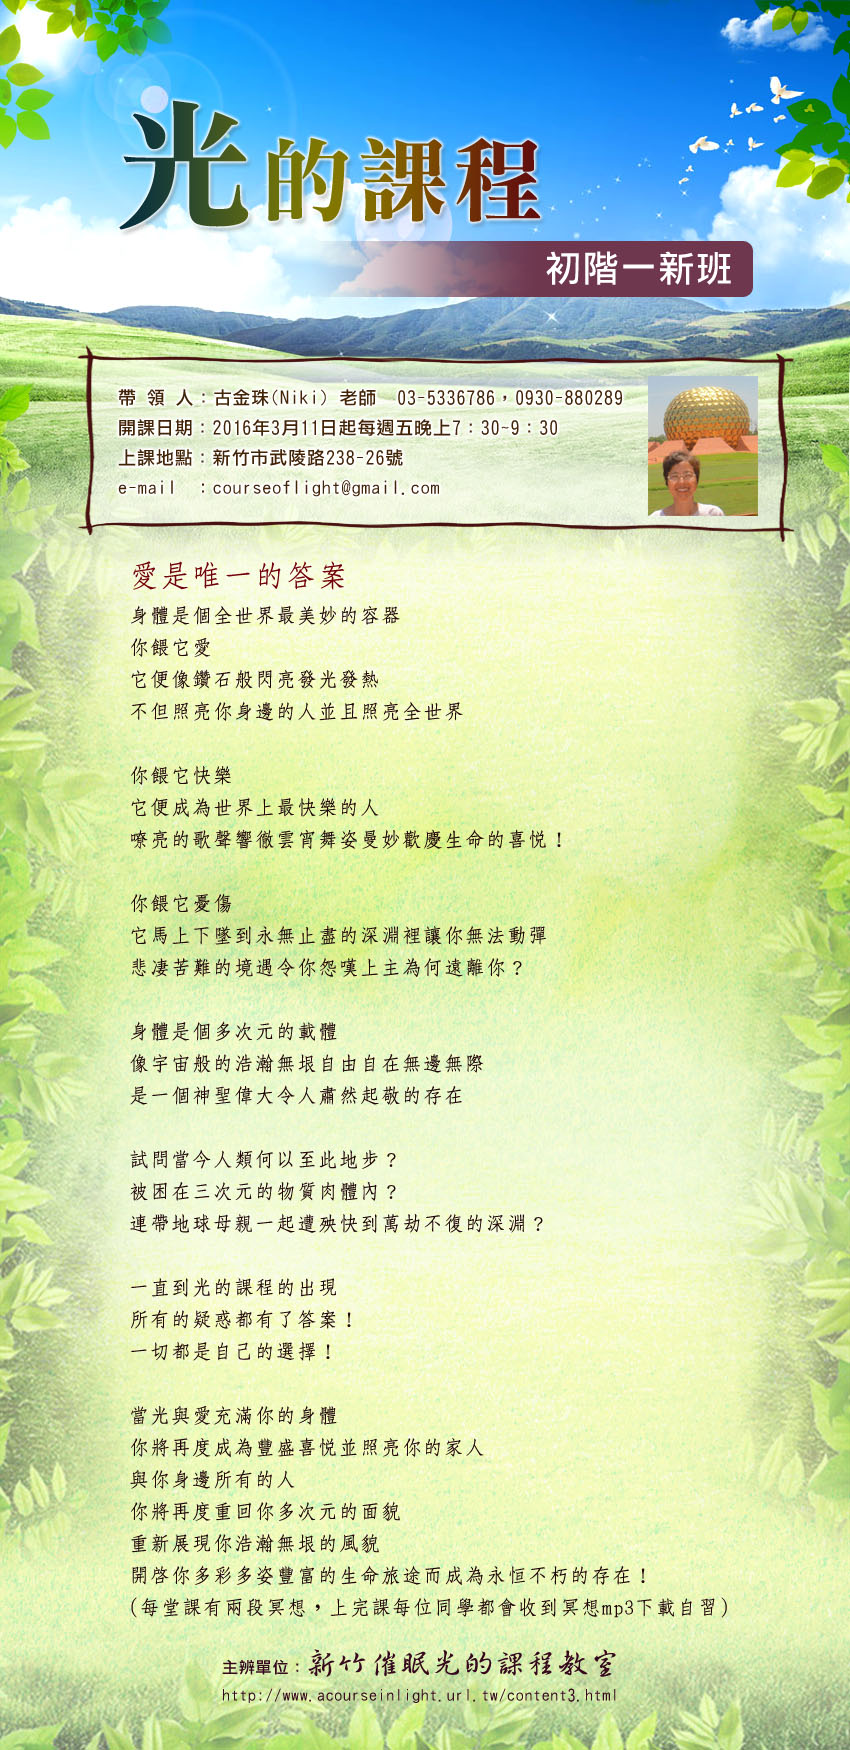 光的課程
初階一新班
帶 領 人：古金珠(Niki) 老師　03-5336786，0930-880289
開課日期：2016年3月11日起每週五晚上7：30~9：30
上課地點：新竹市武陵路238-26號
e-mail　：courseoflight@gmail.com
愛是唯一的答案
身體是個全世界最美妙的容器
你餵它愛
它便像鑽石般閃亮發光發熱
不但照亮你身邊的人並且照亮全世界
你餵它快樂
它便成為世界上最快樂的人
嘹亮的歌聲響徹雲宵舞姿曼妙歡慶生命的喜悦！
你餵它憂傷
它馬上下墜到永無止盡的深淵裡讓你無法動彈
悲淒苦難的境遇令你怨嘆上主為何遠離你？
身體是個多次元的載體
像宇宙般的浩瀚無垠自由自在無邊無際
是一個神聖偉大令人肅然起敬的存在
試問當今人類何以至此地步？
被困在三次元的物質肉體內？
連帶地球母親一起遭殃快到萬劫不復的深淵？
一直到光的課程的出現
所有的疑惑都有了答案！
一切都是自己的選擇！
當光與愛充滿你的身體
你將再度成為豐盛喜悦並照亮你的家人
與你身邊所有的人
你將再度重回你多次元的面貌
重新展現你浩瀚無垠的風貌
開啓你多彩多姿豐富的生命旅途而成為永恒不朽的存在！
(每堂課有兩段冥想，上完課每位同學都會收到冥想mp3下載自習)
主辦單位：新竹催眠光的課程教室
http://www.acourseinlight.url.tw/content3.html